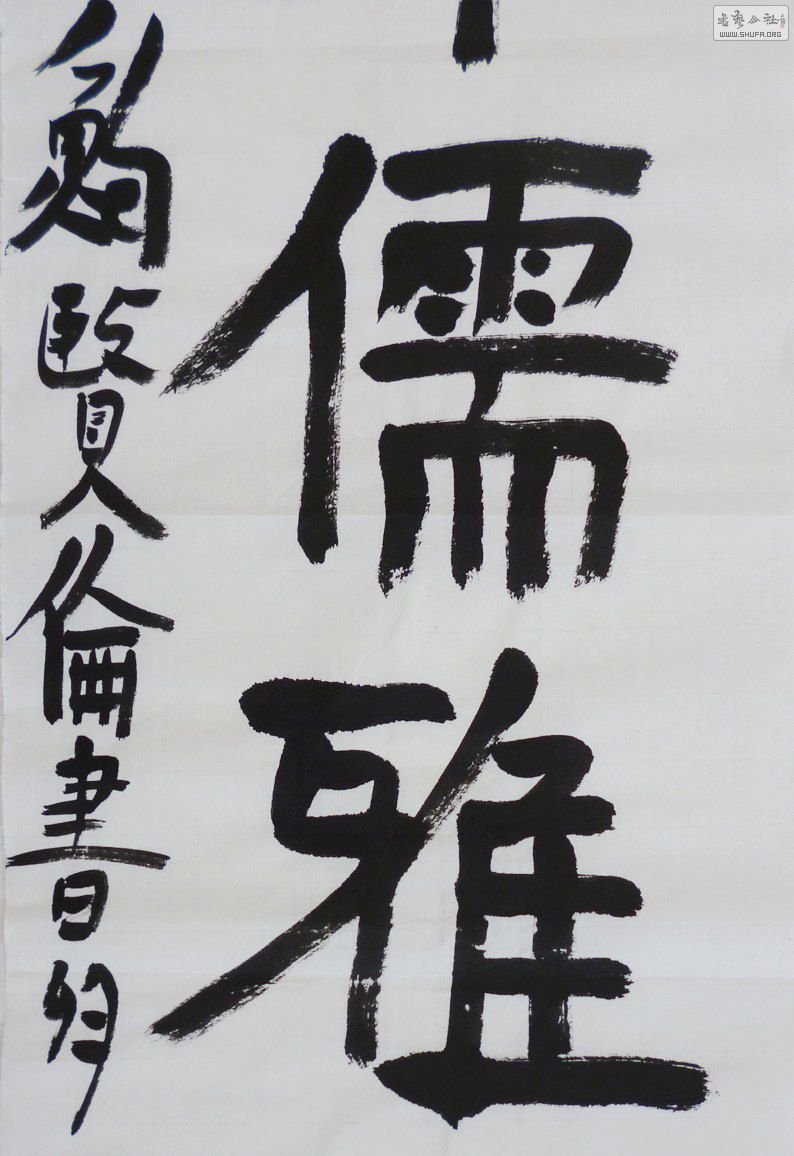 儒雅
賢倫書
書藝公社
WWW.SHUFA.ORG